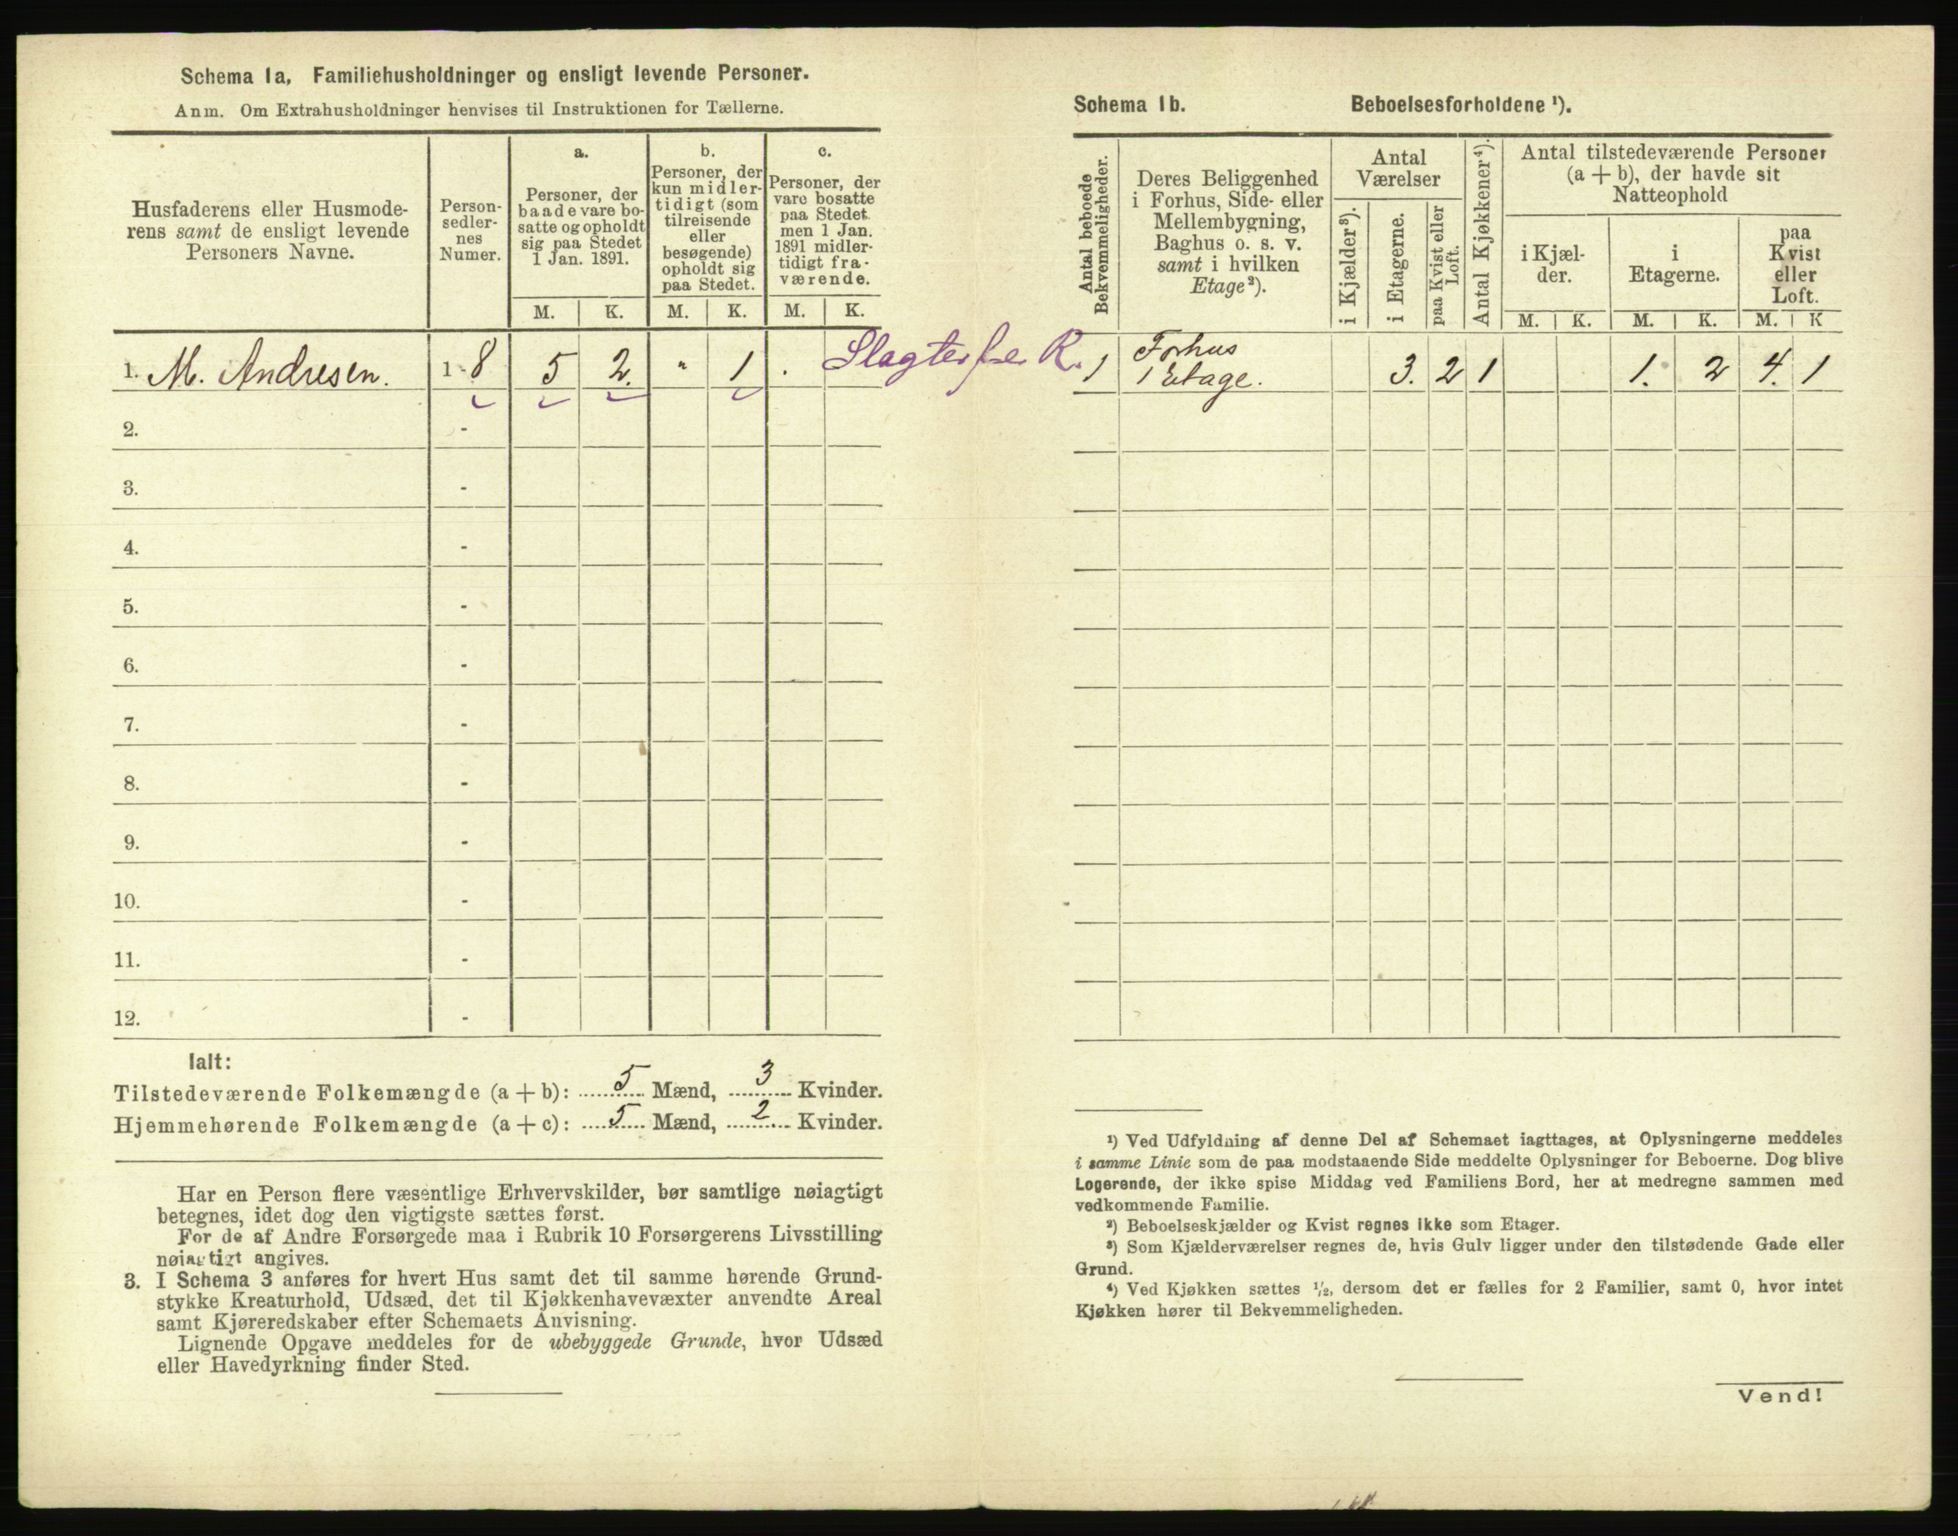 Schema 1a. Familiehusholdninger og ensligt levende Personer.
Anm. Om Extrahusholdninger henvises til Instruktionen for Tællerne.
Husfaderens eller Husmode-
rens samt de ensligt levende
Personers Navne.
Person-
sedler-
nes
Numer.
a.
Personer, der
baade vare bo-
satte og opholdt
sig paa Stedet
1 Jan. 1891.
b.
Personer, der
kun midler-
tidigt (som
tilreisende
eller
besøgende)
opholdt sig
paa Stedet.
c.
Personer, der
vare bosatte
paa Stedet
men 1 Jan.
1891 midler-
tidigt fra-
værende.
M. K. M. K. M. K.
1. M. Andresen. 1-8 5 2. " 1 .
2. -
3. -
4. -
5. -
6. -
7. -
8. -
9. -
10. -
11. -
12. -
Ialt:
Tilstedeværende Folkemængde (a + b): 5 Mænd, 3 Kvinder.
Hjemmehørende Folkemængde (a + c): 5 Mænd, 2 Kvinder.
Har en Person flere væsentlige Erhvervskilder, bør samtlige nøiagtigt
betegnes, idet dog den vigtigste sættes først.
For de af Andre Forsørgede maa i Rubrik 10 Forsørgerens Livsstilling
nøiagtigt angives.
3. I Schema 3 anføres for hvert Hus samt det til samme hørende Grund-
stykke Kreaturhold, Udsæd, det til Kjøkkenhavevæxter anvendte Areal
samt Kjøreredskaber efter Schemaets Anvisning.
Lignende Opgave meddeles for de ubebyggede Grunde, hvor Udsæd
eller Havedyrkning finder Sted.
Schema 1b. Beboelsesforholdene ¹).
Antal beboede
Bekvemmeligheder.
Deres Beliggenhed
i Forhus, Side- eller
Mellembygning,
Baghus o. s. v.
samt i hvilken
Etage²).
Antal
Værelser
i Kjælder³).
i Etagerne.
paa Kvist eller
Loft.
Antal Kjøkkener⁴).
Antal tilstedeværende Personer
(a + b), der havde sit
Natteophold
i Kjæl-
der.
i
Etagerne.
paa
Kvist
eller
Loft.
M. K. M. K. M. K
1 Forhus
1 Etage. 3. 2 1 1. 2 4. 1
¹) Ved Udfyldning af denne Del af Schemaet iagttages, at Oplysningerne meddeles
i samme Linie som de paa modstaaende Side meddelte Oplysninger for Beboerne. Dog blive
Logerende, der ikke spise Middag ved Familiens Bord, her at medregne sammen med
vedkommende Familie.
²) Beboelseskjælder og Kvist regnes ikke som Etager.
³) Som Kjælderværelser regnes de, hvis Gulv ligger under den tilstødende Gade eller
Grund.
⁴) Ved Kjøkken sættes ¹/₂, dersom det er fælles for 2 Familier, samt 0, hvor intet
Kjøkken hører til Bekvemmeligheden.
Vend!